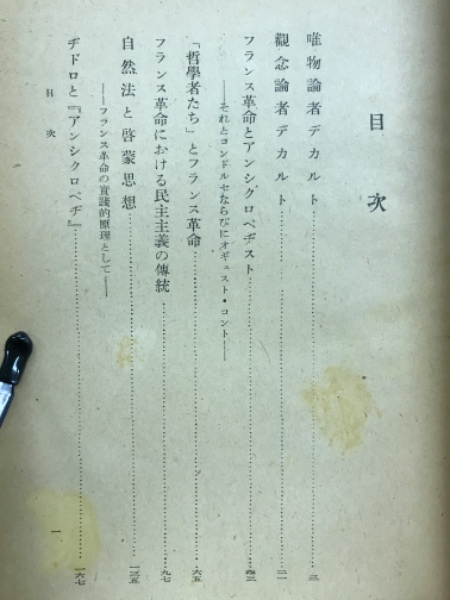 目次
唯物論者デカルト……三
觀念論者デカルト……二一
フランス革命とアンシクロペヂスト……四三
——それとコンドルセならびにオギュスト・コント——
「哲學者たち」とフランス革命……六五
フランス革命における民主主義の傳統……九七
自然法と啓蒙思想……一三五
——フランス革命の實踐的原理として——
ヂドロと『アンシクロペヂ』……一六七
目次
一